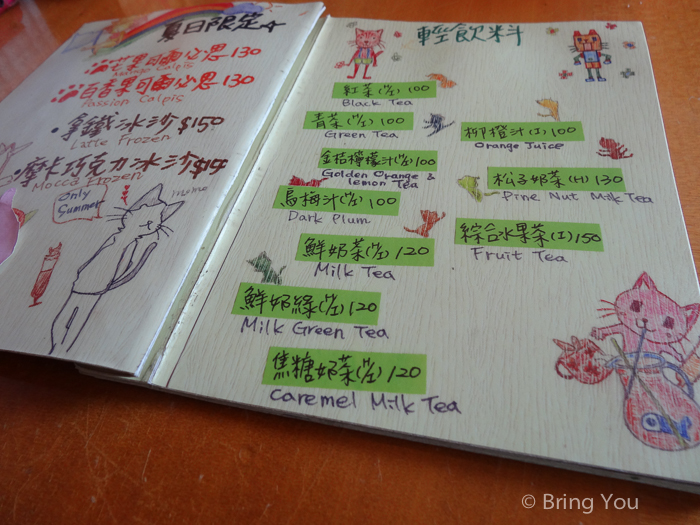 夏日限定☆
芒果可爾必思130
Mango Calpis
百香果可爾必思130
Passion Calpis
・拿鐵冰沙$150
Latte Frozen
・摩卡巧克力冰沙
Mocca Frozen
only
Summer
輕飲料
紅茶(H/I) 100
Black Tea
青茶(H/I) 100
Green Tea
金桔檸檬汁(H/I)100
Golden Orange &
lemon Tea
烏梅汁(H/I) 100
Dark Plum
鮮奶茶(H/I)120
Milk Tea
鮮奶綠(H/I)120
Milk Green Tea
焦糖奶茶(H/I)120
Caremel Milk Tea
柳橙汁(I)100
Orange Juice
松子奶茶(H)130
Pine Nut Milk Tea
綜合水果茶(I)150
Fruit Tea
© Bring You